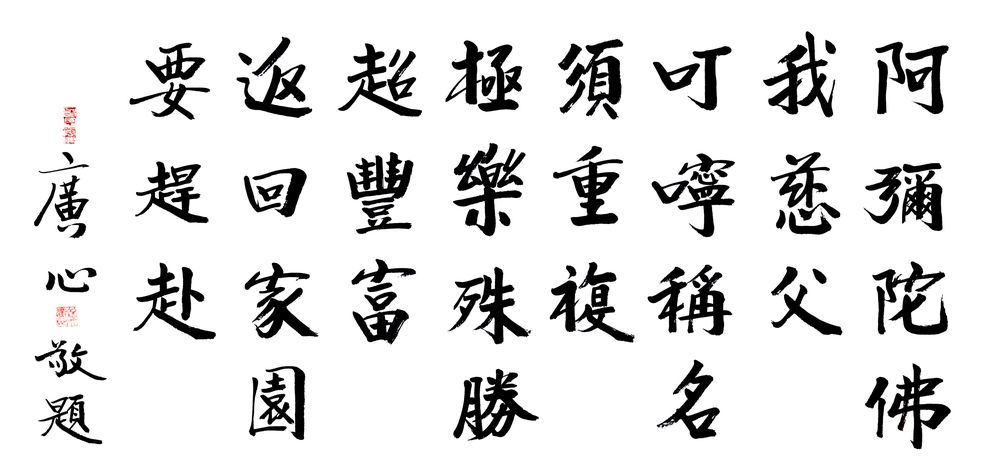 阿彌陀佛
我慈父
叮嚀稱名
須重複
極樂殊勝
超豐富
返回家園
要趕赴
廣心敬題